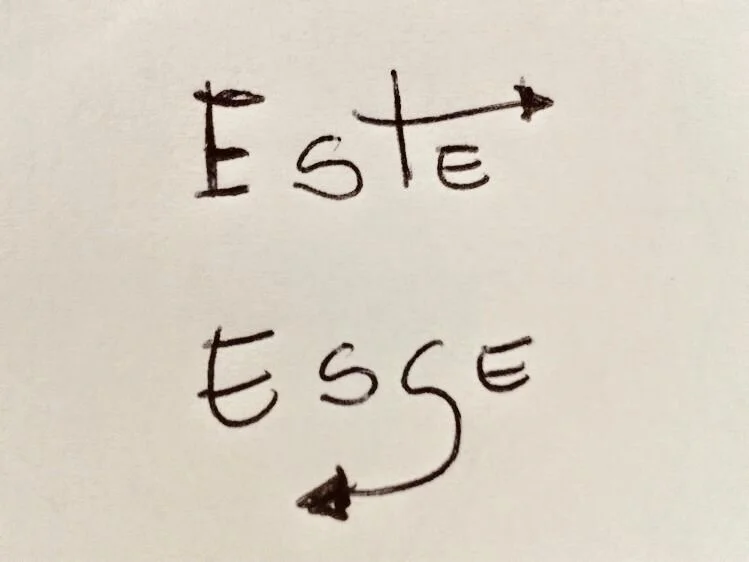 Este
Esse